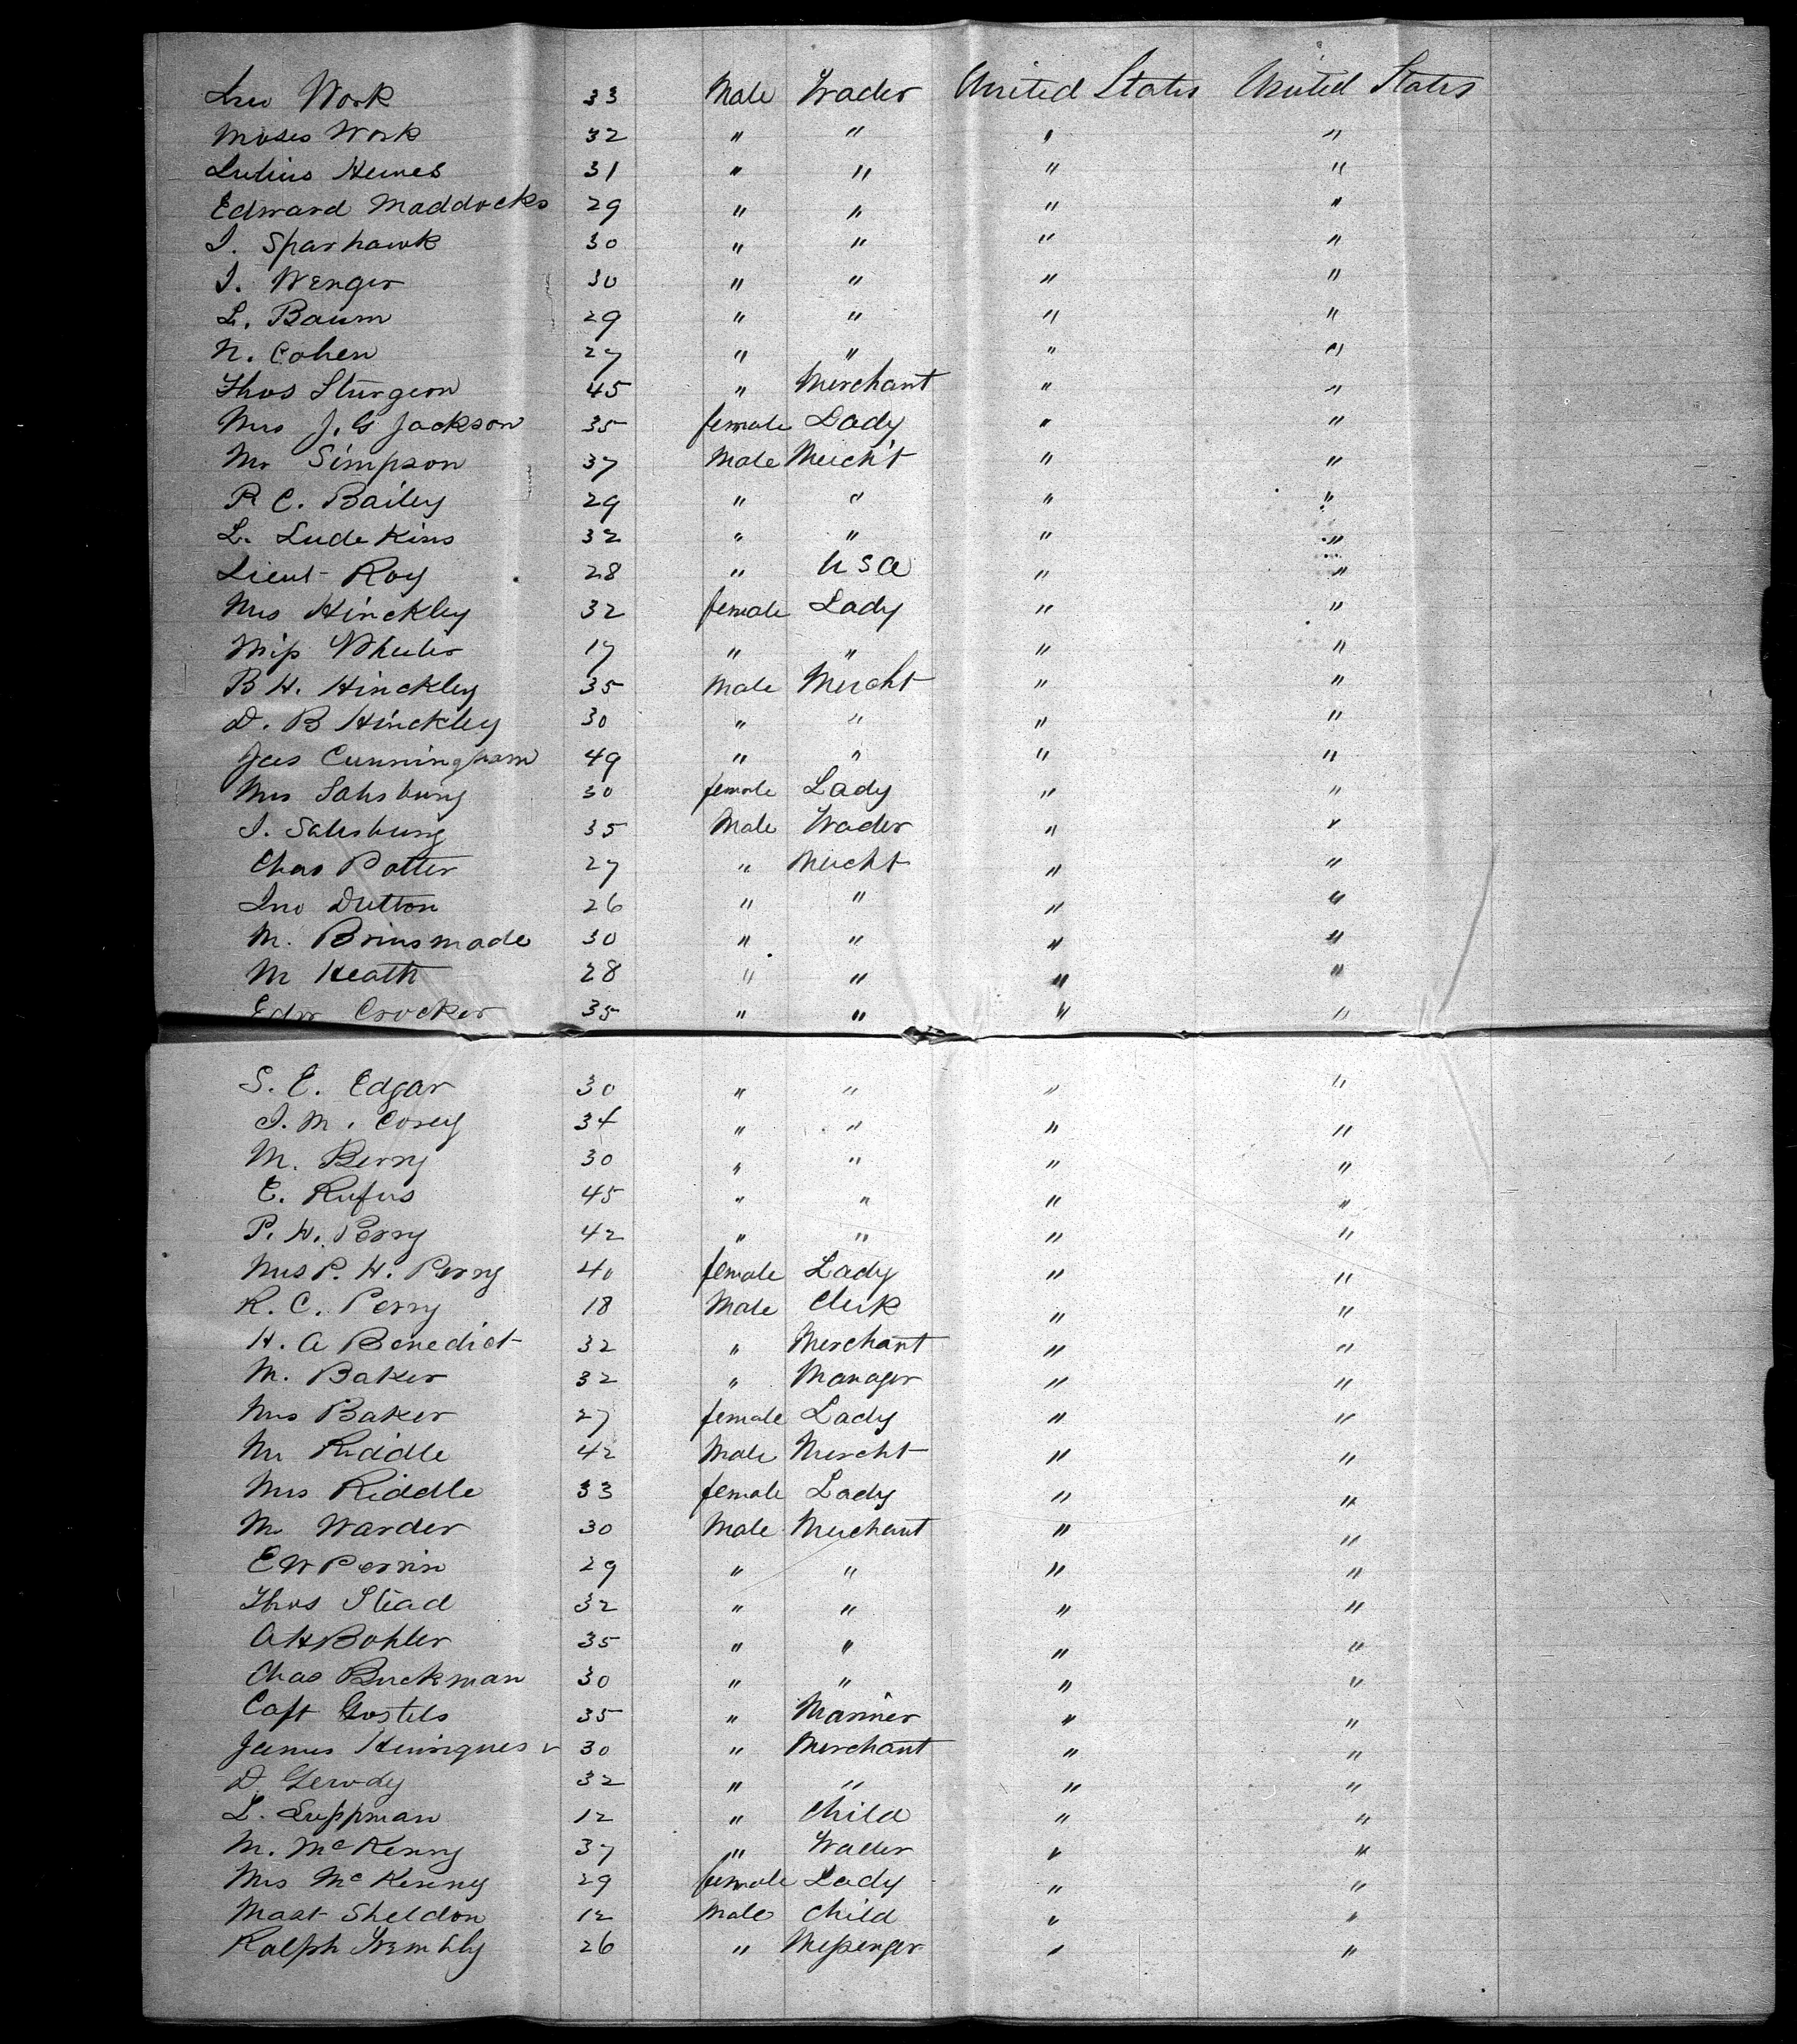 Jno Work 33 Male Trader United States United States
Moses Work 32 " " " "
Julius Heines 31 " " " "
Edward Maddocks 29 " " " "
J. Sparhawk 30 " " " "
J. Wenger 30 " " " "
L. Baum 29 " " " "
N. Cohen 27 " " " "
Thos Sturgeon 45 " Merchant " "
Mrs J. G Jackson 35 female Lady " "
Mr Simpson 37 Male Merch't " "
R C. Bailey 29 " " " "
L. Ludekins 32 " " " "
Lieut Roy 28 " USA " "
Mrs Hinckley 32 female Lady " "
Miss Wheeler 17 " " " "
B H. Hinckley 35 Male Mercht " "
D. B Hinckley 30 " " " "
Jas Cunningham 49 " " " "
Mrs Salisbury 30 female Lady " "
J. Salisbury 35 Male Trader " "
Chas Potter 27 " Mercht " "
Jno Dutton 26 " " " "
M. Brinsmade 30 " " " "
M Heath 28 " " " "
Edw Crocker 35 " " " "
S. E. Edgar 30 " " " "
J. M. Corey 34 " " " "
M. Berry 30 " " " "
E. Rufus 45 " " " "
P. H. Perry 42 " " " "
Mrs P. H. Perry 40 female Lady " "
R. C. Perry 18 Male Clerk " "
H. A Benedict 32 " Merchant " "
M. Baker 32 " Manager " "
Mrs Baker 27 female Lady " "
Mr Riddle 42 Male Mercht " "
Mrs Riddle 33 female Lady " "
M Warder 30 Male Merchant " "
E W Perrin 29 " " " "
Thos Stead 32 " " " "
A H Bohler 35 " " " "
Chas Buckman 30 " " " "
Capt 35 " Mariner " "
James Henriques 30 " Merchant " "
D. 32 " " " "
L. Luppman 12 " Child " "
M. McKenny 37 " Trader " "
Mrs McKenny 29 female Lady " "
Mast Sheldon 12 Male Child " "
Ralph Trembly 26 " Messenger " "